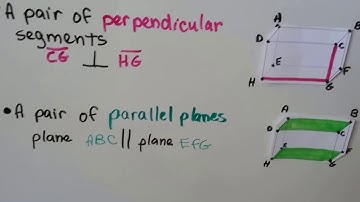 A pair of perpendicular
segments
CG ⊥ HG
• A pair of parallel planes
plane ABC || plane EFG
A
B
D
C
E
F
H
G
A
B
D
C
E
F
H
G